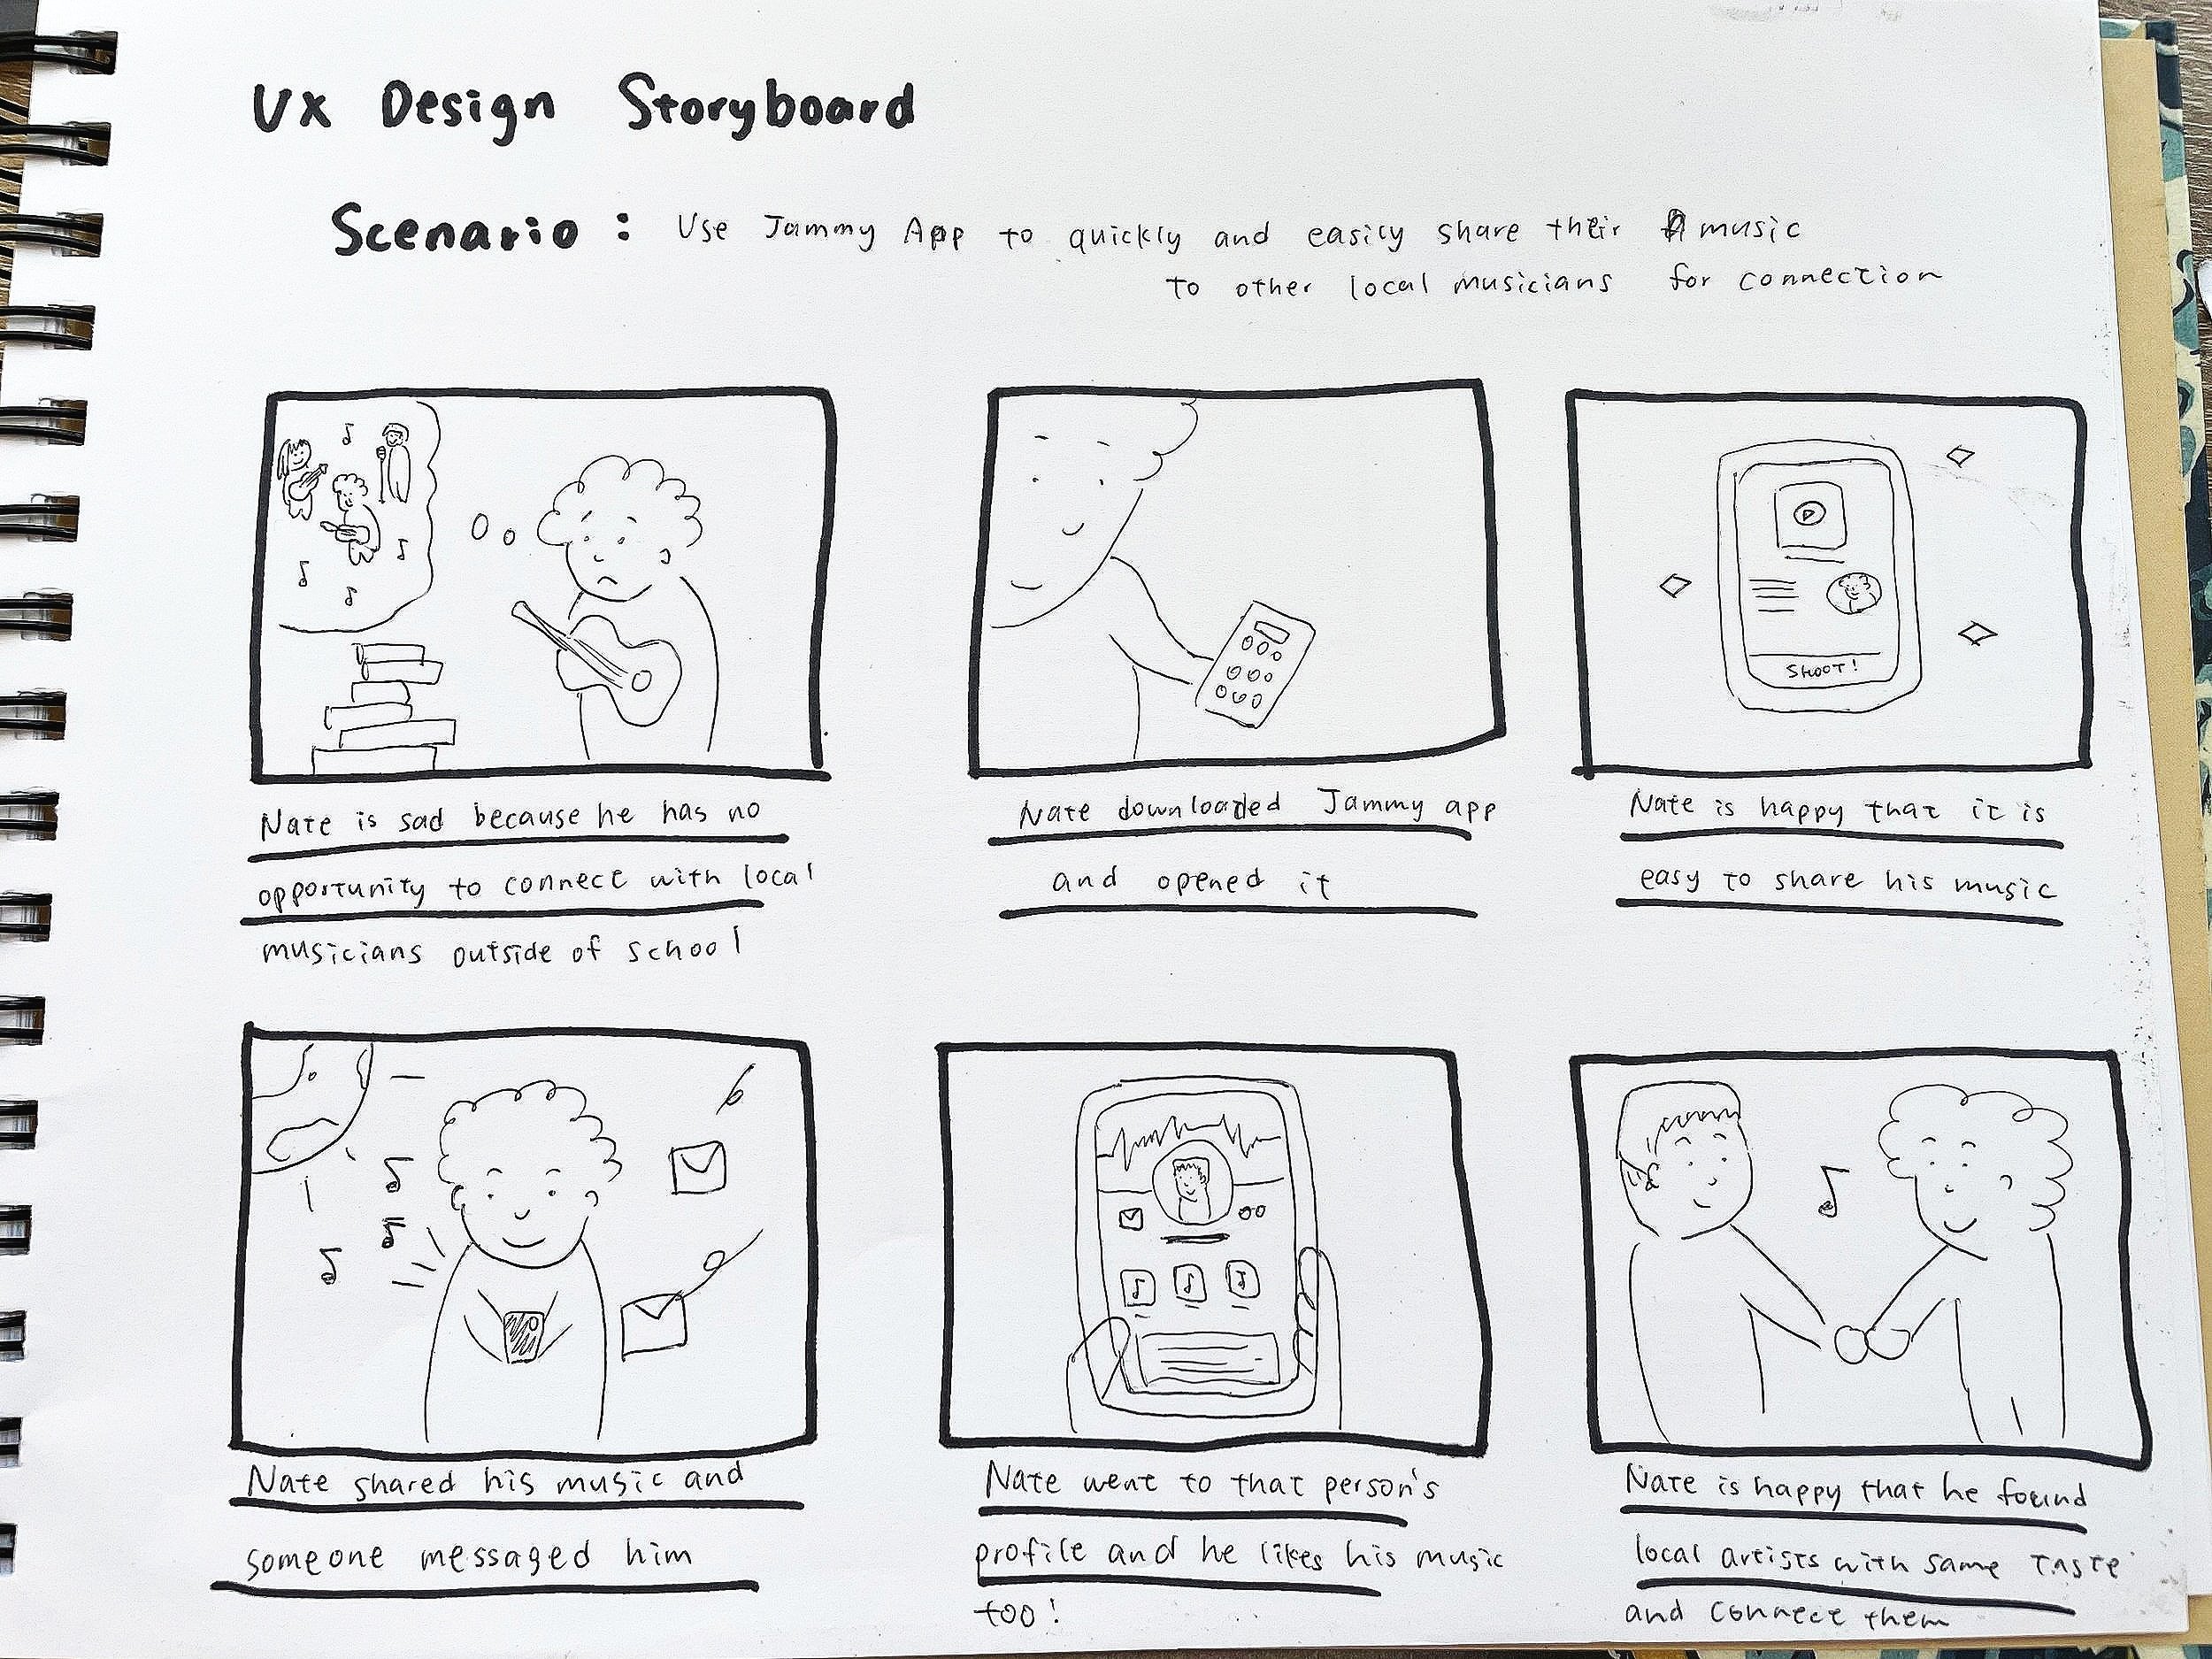 UX Design Storyboard
Scenario : Use Jammy App to quickly and easily share their music
to other local musicians for connection
SHOOT!
Nate is sad because he has no
opportunity to connect with local
musicians outside of school
Nate downloaded Jammy app
and opened it
Nate is happy that it is
easy to share his music
Nate shared his music and
someone messaged him
Nate went to that person's
profile and he likes his music
too!
Nate is happy that he found
local artists with same taste
and connect them